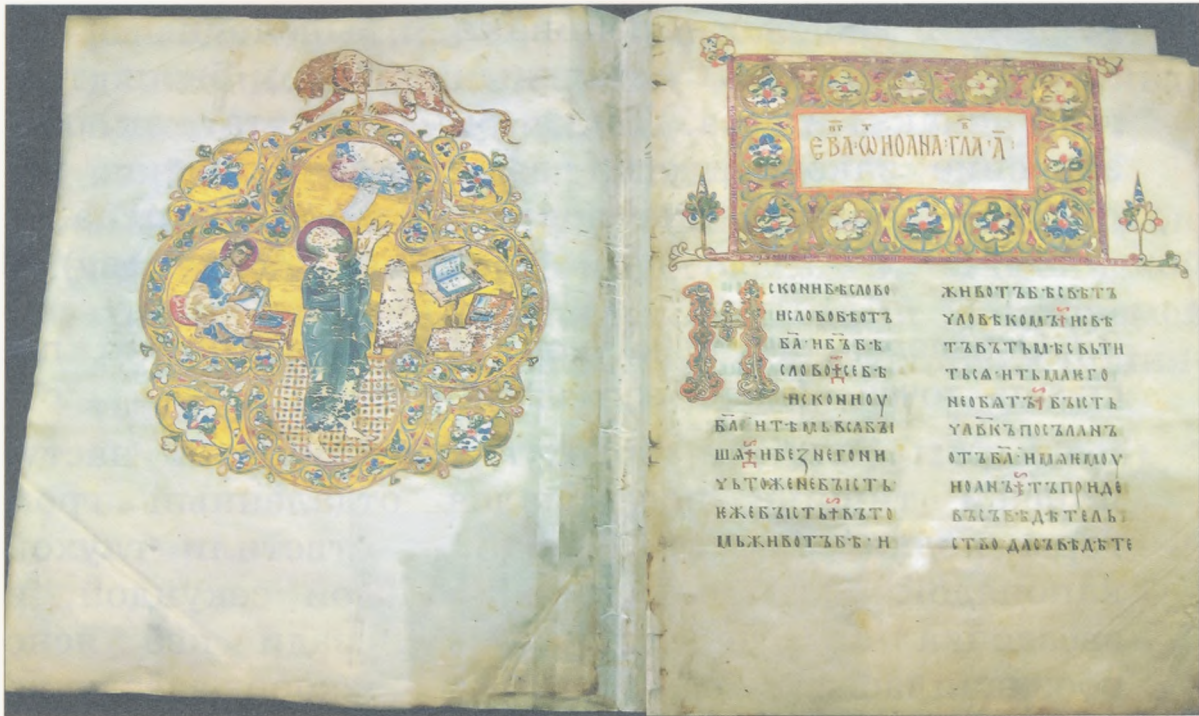 ЕВА · Ѿ ИОАНА · ГЛА · А҃
ИСКОНИ БѢ СЛОВО
И СЛОВО БѢ ОТЪ
Б҃А · И Б҃Ъ БѢ
СЛОВО СЕ БѢ
ИСКОНИ ОУ
Б҃А · И ТѢМЬ ВСꙖ БЫ
ШѦ И БЕЗ НЕГО НИ
ЧЬТОЖЕ НЕ БЫСТЬ
ѤЖЕ БЫСТЬ ВЪ ТО
МЬ ЖИВОТЪ БѢ · И
ЖИВОТЪ БѢ СВѢТЪ
ЧЛОВѢКОМЪ И СВѢ
ТЪ ВЪ ТЬМѢ СВЬТИ
ТЬСѦ · И ТЬМА ѤГО
НЕ ОБѦТЪ БЫСТЬ
ЧЛ҃ВКЪ ПОСЪЛАНЪ
ОТЪ Б҃А · ИМѦ ѤМОУ
ИОАНЪ ТЪ ПРИДЕ
ВЪ СЪВѢДѢТЕЛЬ
СТВО ДА СЪВѢДѢТЕ